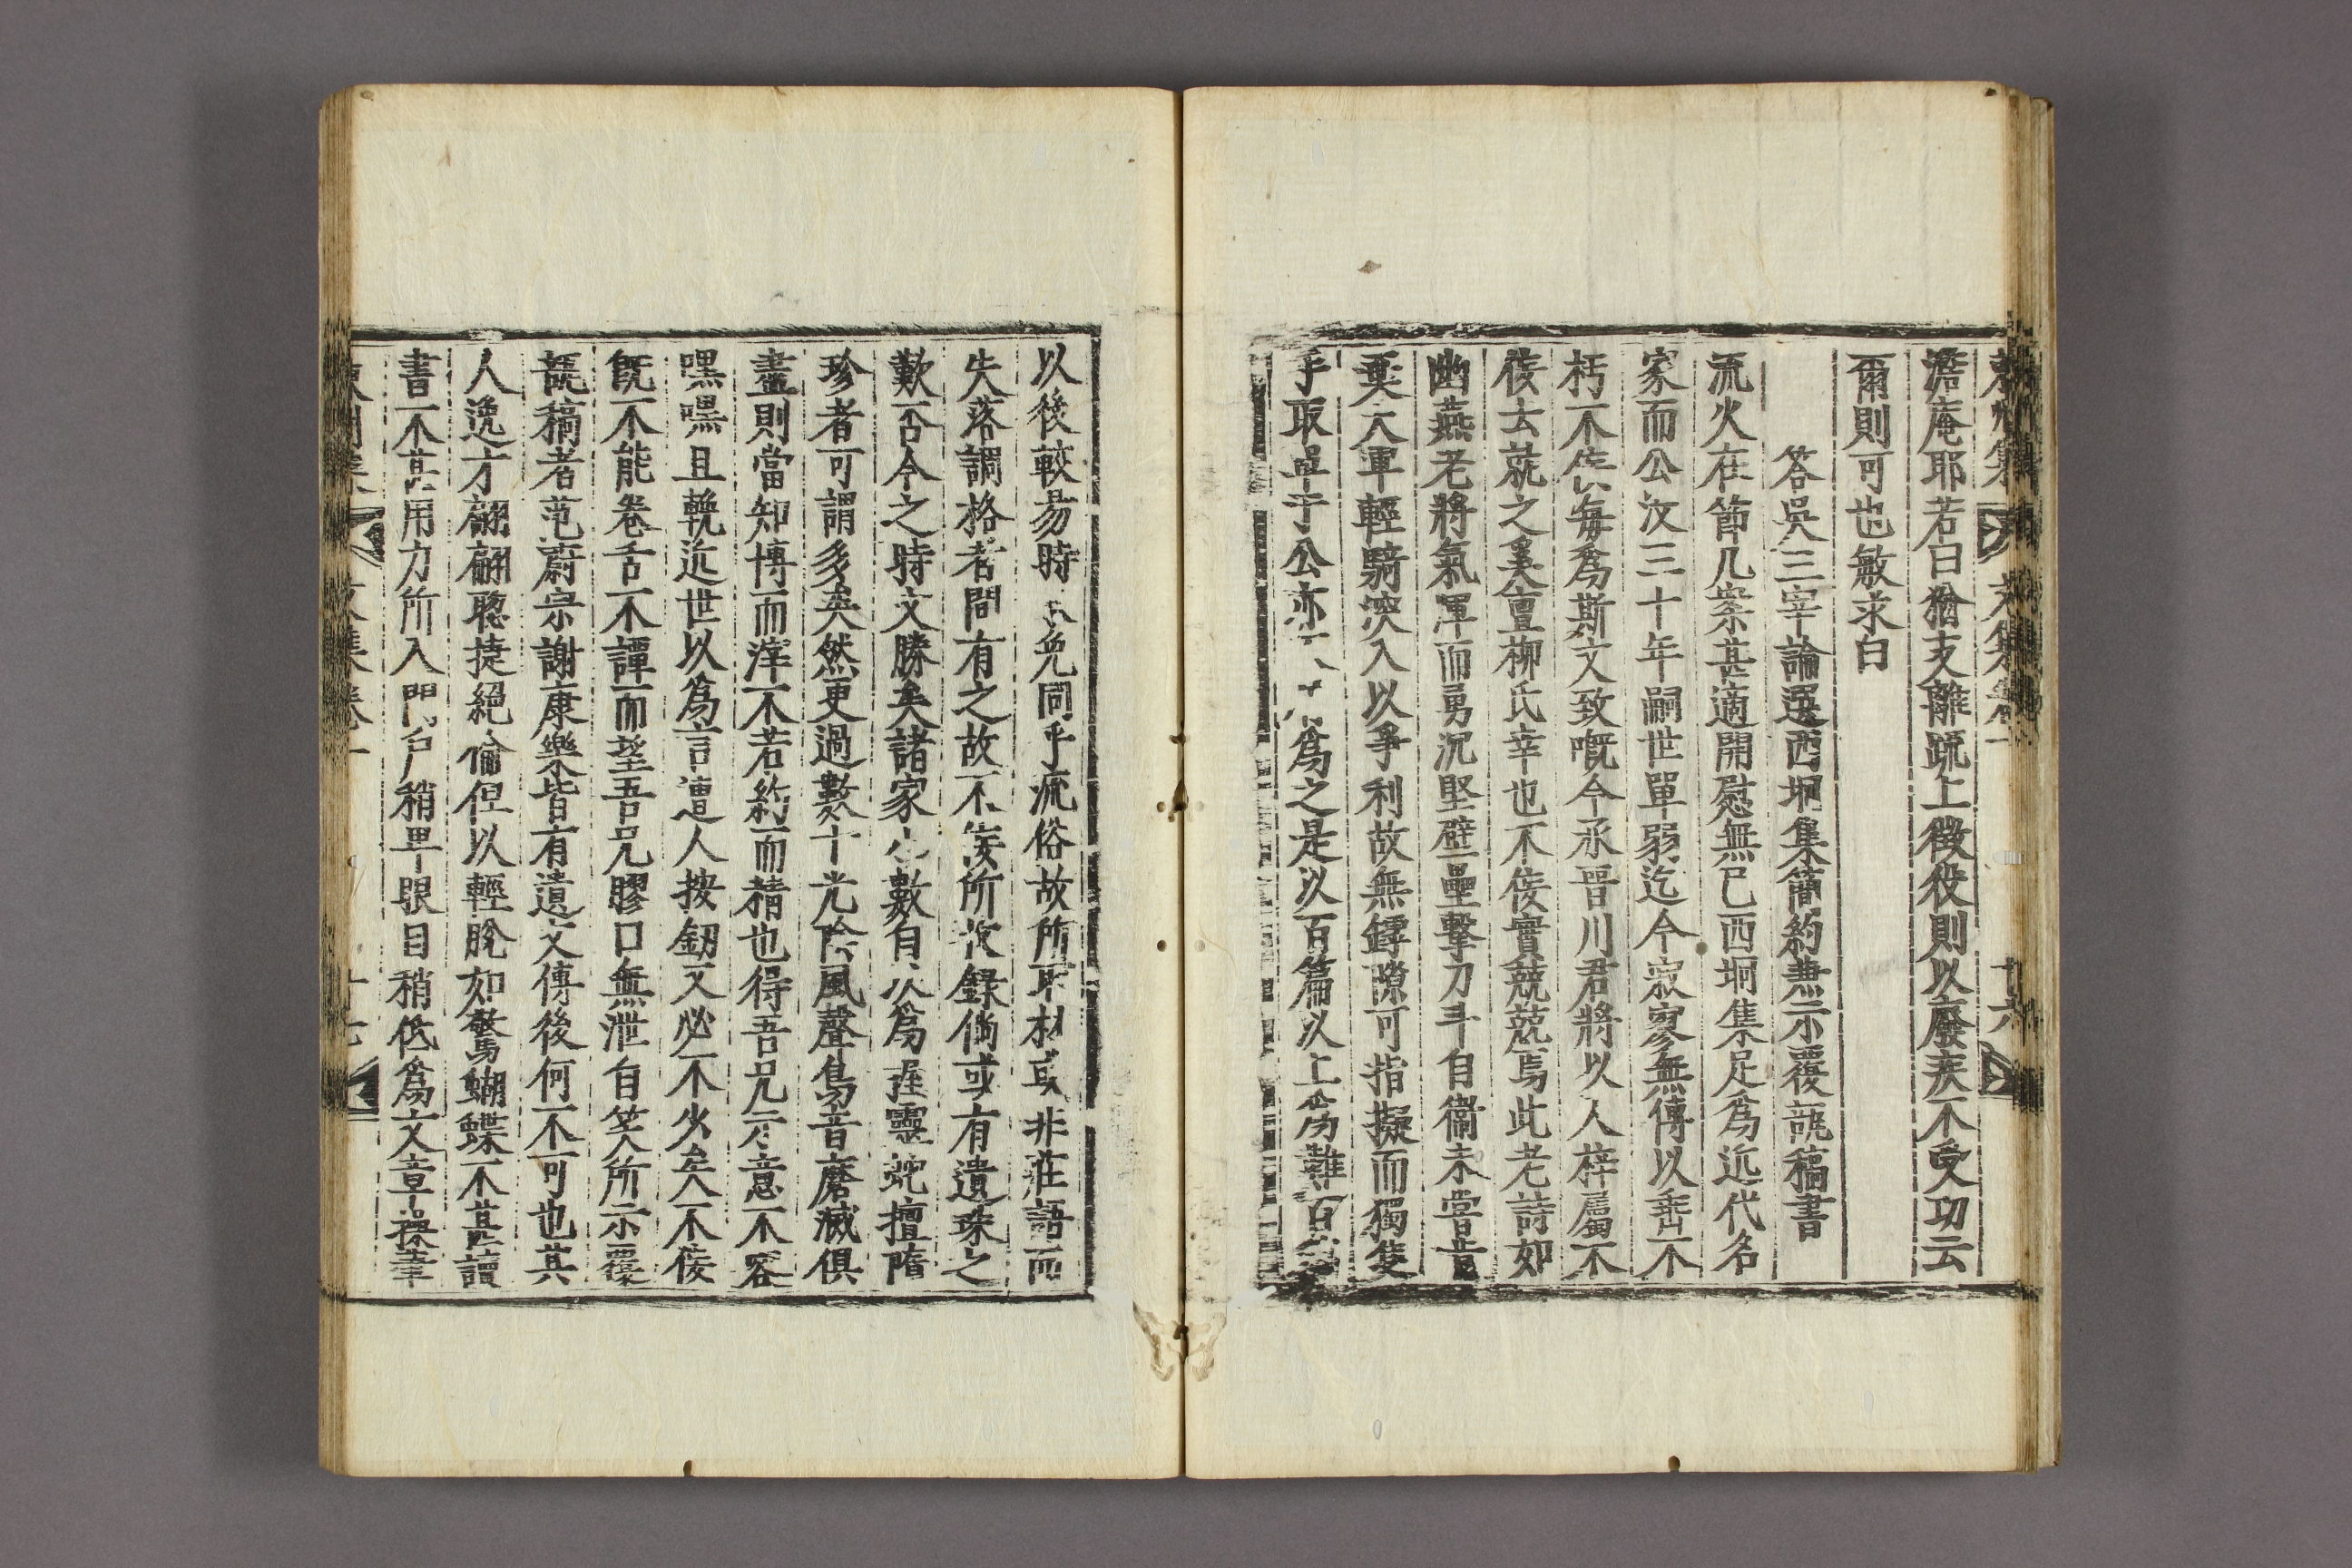 集
十六
澹庵耶若曰猶支離疏上徵役則以廢疾不受功云
爾則可也敏求白
答吳三宰論選西坰集簡約兼示覆瓿稿書
流火在節几案甚適開慰無已西坰集足爲近代名
家而公汶三十年嗣世單弱迄今寂寥無傳以垂不
朽不佞每爲斯文致嘅今承晉川君將以入梓屬不
佞去就之奚亶柳氏幸也不佞實兢兢焉此老詩如
幽燕老將氣渾而勇沉堅壁壘擊刀斗自衛未嘗肯
棄大軍輕騎深入以爭利故無鏬隙可指擬而獨隻
手取單于公亦 爲之是以百篇以上爲難百
以後較易時 免同乎流俗故所取材或非莊語而
失落調格者間有之故不佞所 錄倘或有遺珠之
歎否今之時文勝矣諸家 數自以爲握靈蛇擅隋
珍者可謂多矣然更過數十光陰風聲鳥音磨滅俱
盡則當知博而滓不若約而精也得吾兄示意不容
嘿嘿且輓近世以爲言遭人按劒又必不少矣不佞
旣不能卷舌不譚而望吾兄膠口無泄自笑所示覆
瓿稿者范蔚宗謝康樂皆有遺文傳後何不可也其
人逸才翩翩聰捷絕倫但以輕脫如驚蝴蝶不甚讀
書不甚用力所入門戶稍卑眼目稍低爲文章操筆